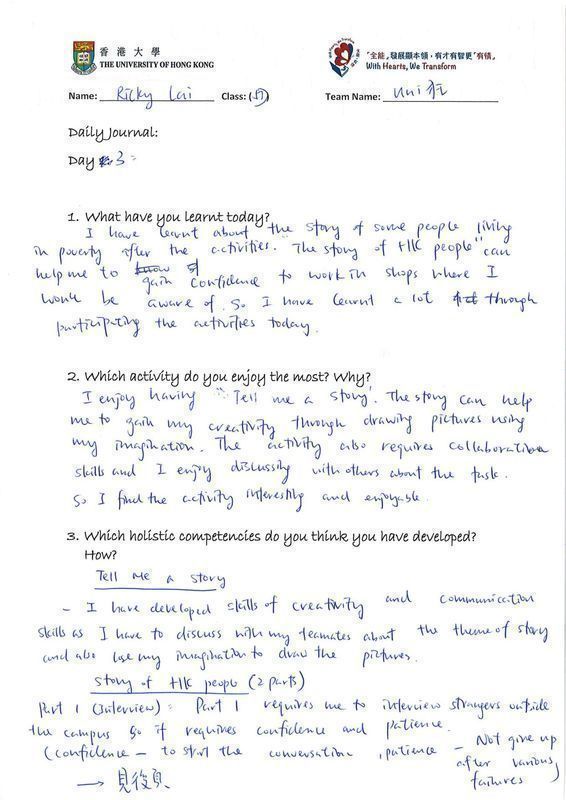 香港大學
THE UNIVERSITY OF HONG KONG
「全能」發展顯本領，有才有智更「有倩」
With Hearts, We Transform
Name: Ricky Lai Class: (J7) Team Name: Uni狂
Daily Journal:
Day 3:
1. What have you learnt today?
I have learnt about the story of some people living
in poverty after the activities. "The story of HK people" can
help me to gain confidence to work in shops where I
won't be aware of. So I have learnt a lot through
participating the activities today.
2. Which activity do you enjoy the most? Why?
I enjoy having "Tell me a story". The story can help
me to gain my creativity through drawing pictures using
my imagination. The activity also requires collaboration
skills and I enjoy discussing with others about the task.
So I find the activity interesting and enjoyable.
3. Which holistic competencies do you think you have developed?
How?
Tell me a story
- I have developed skills of creativity and communication
skills as I have to discuss with my teamates about the theme of story
and also use my imagination to draw the pictures.
Story of HK people (2 parts)
Part 1 (Interview): Part 1 requires me to interview strangers outside
the campus so it requires confidence and patience.
(confidence - to start the conversation, patience - Not give up
after various
failures)
→ 見後頁